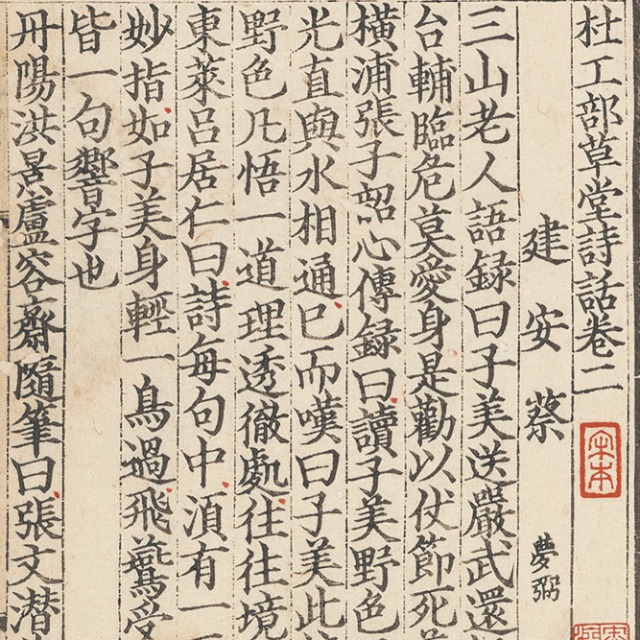 杜工部草堂詩話卷二
宋本
建安蔡
夢弼
三山老人語録曰子美送嚴武還
台輔臨危莫愛身是勸以仗節死
橫浦張子韶心傳録曰讀子美野色
光直與水相通已而嘆曰子美此
野色凡悟一道理透徹處往往境
東萊呂居仁曰詩每句中須有一
妙指如子美身輕一鳥過飛鷰受
皆一句響字也
丹陽洪景盧容齋隨筆曰張文潛